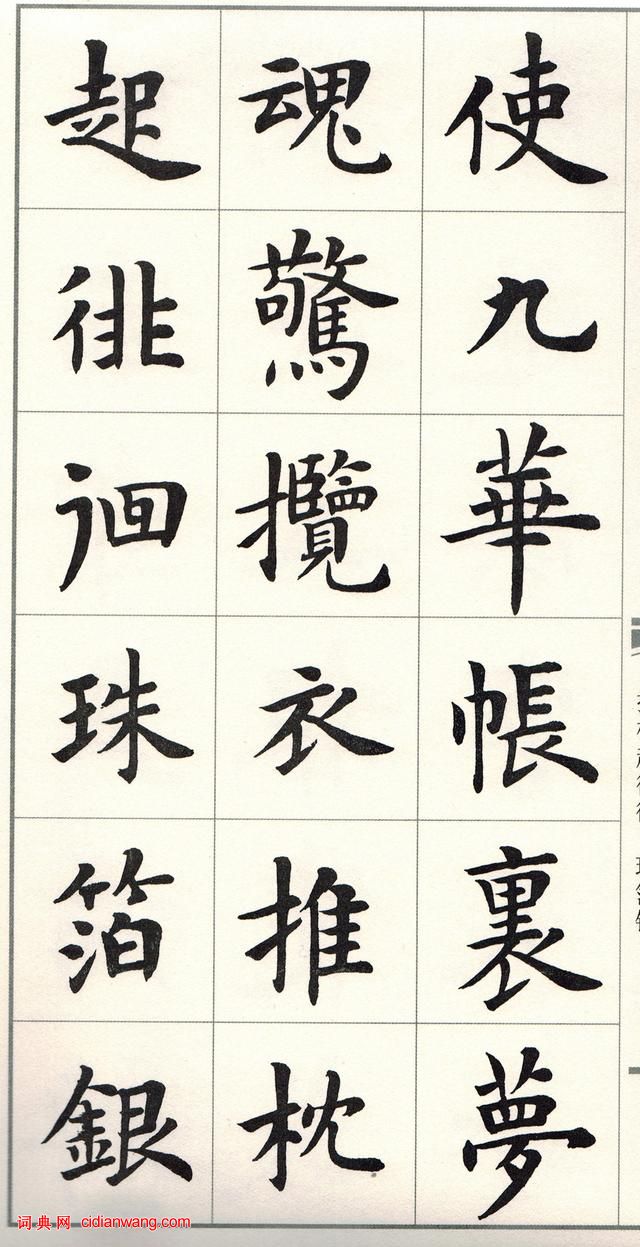 使九華帳裏夢
魂驚攬衣推枕
起徘徊珠箔銀
词典网 cidianwang.com